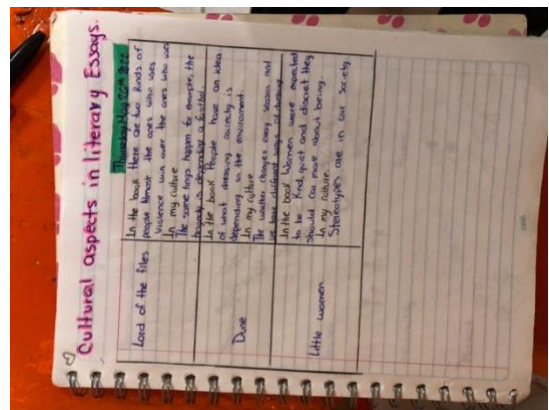 Cultural aspects in literary Essays.
Thursday May 26th 2022
Lord of the flies
In the book there are two kinds of
people Almost the ones who uses
violence win over the ones who uses
In my culture
The same tings happen for example, the
is depending a
Dune
In the book People have an idea
of what dressing correctly is
depending on the enviroment.
In my culture
The weather changes every season and
we have different ways of dressing
Little women
In the book Women were expected
to be Kind, quiet and discret they
should care more about being.
In my culture.
Stereotypes are in our society